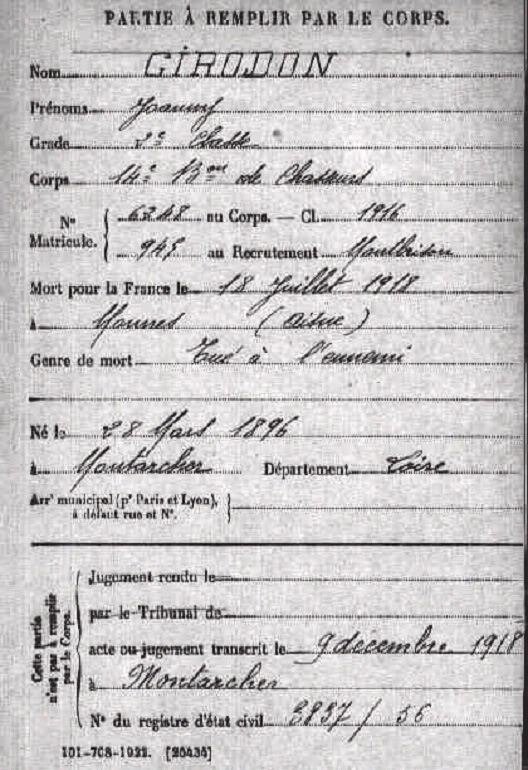 PARTIE À REMPLIR PAR LE CORPS.
Nom GIRODON
Prénoms Joanny
Grade 2e Classe
Corps 14e Bon de Chasseurs
No Matricule. { 6348 au Corps. — Cl. 1916
945 au Recrutement Montbrison
Mort pour la France le 18 Juillet 1918
à (Aisne)
Genre de mort Tué à l'ennemi
Né le 28 Mars 1896
à Montarcher Département Loire
Arrt municipal (pr Paris et Lyon),
à défaut rue et No.
Cette partie n'est pas à remplir par le Corps.
Jugement rendu le
par le Tribunal de
acte ou jugement transcrit le 9 décembre 1918
à Montarcher
No du registre d'état civil 3837 / 56
101-708-1922. [26434]